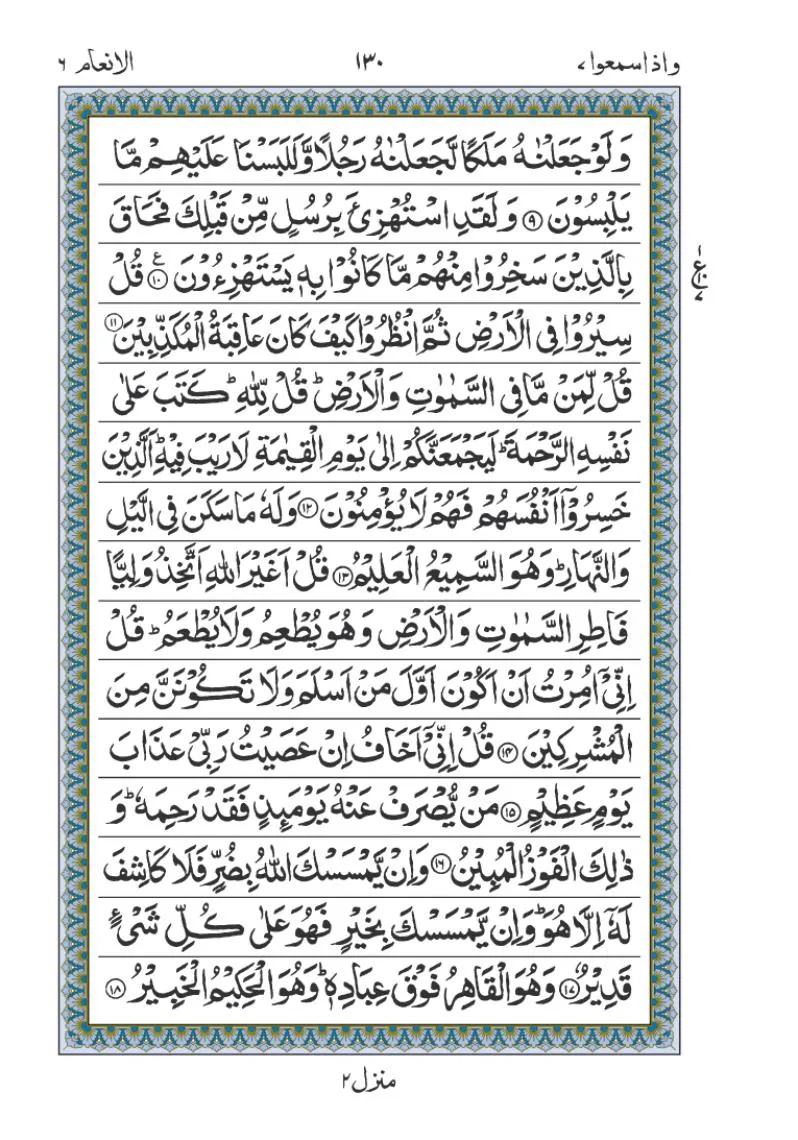 واذاسمعوا ۷ ۱۳۰ الانعام ۶
وَلَوْ جَعَلْنٰهُ مَلَكًا لَّجَعَلْنٰهُ رَجُلًا وَّلَلَبَسْنَا عَلَيْهِمْ مَّا
يَلْبِسُوْنَ ۹ وَلَقَدِ اسْتُهْزِئَ بِرُسُلٍ مِّنْ قَبْلِكَ فَحَاقَ
بِالَّذِيْنَ سَخِرُوْا مِنْهُمْ مَّا كَانُوْا بِهٖ يَسْتَهْزِءُوْنَ ۱۰ ع قُلْ
ع ۱ ۱۰ ۷
سِيْرُوْا فِي الْاَرْضِ ثُمَّ انْظُرُوْا كَيْفَ كَانَ عَاقِبَةُ الْمُكَذِّبِيْنَ ۱۱
قُلْ لِّمَنْ مَّا فِي السَّمٰوٰتِ وَالْاَرْضِ ؕ قُلْ لِّلّٰهِ ؕ كَتَبَ عَلٰى
نَفْسِهِ الرَّحْمَةَ ؕ لَيَجْمَعَنَّكُمْ اِلٰى يَوْمِ الْقِيٰمَةِ لَا رَيْبَ فِيْهِ ؕ اَلَّذِيْنَ
خَسِرُوْۤا اَنْفُسَهُمْ فَهُمْ لَا يُؤْمِنُوْنَ ۱۲ وَلَهٗ مَا سَكَنَ فِي الَّيْلِ
وَالنَّهَارِ ؕ وَهُوَ السَّمِيْعُ الْعَلِيْمُ ۱۳ قُلْ اَغَيْرَ اللّٰهِ اَتَّخِذُ وَلِيًّا
فَاطِرِ السَّمٰوٰتِ وَالْاَرْضِ وَهُوَ يُطْعِمُ وَلَا يُطْعَمُ ؕ قُلْ
اِنِّيْۤ اُمِرْتُ اَنْ اَكُوْنَ اَوَّلَ مَنْ اَسْلَمَ وَلَا تَكُوْنَنَّ مِنَ
الْمُشْرِكِيْنَ ۱۴ قُلْ اِنِّيْۤ اَخَافُ اِنْ عَصَيْتُ رَبِّيْ عَذَابَ
يَوْمٍ عَظِيْمٍ ۱۵ مَنْ يُّصْرَفْ عَنْهُ يَوْمَئِذٍ فَقَدْ رَحِمَهٗ ؕ وَ
ذٰلِكَ الْفَوْزُ الْمُبِيْنُ ۱۶ وَاِنْ يَّمْسَسْكَ اللّٰهُ بِضُرٍّ فَلَا كَاشِفَ
لَهٗۤ اِلَّا هُوَ ؕ وَاِنْ يَّمْسَسْكَ بِخَيْرٍ فَهُوَ عَلٰى كُلِّ شَيْءٍ
قَدِيْرٌ ۱۷ وَهُوَ الْقَاهِرُ فَوْقَ عِبَادِهٖ ؕ وَهُوَ الْحَكِيْمُ الْخَبِيْرُ ۱۸
منزل ۲